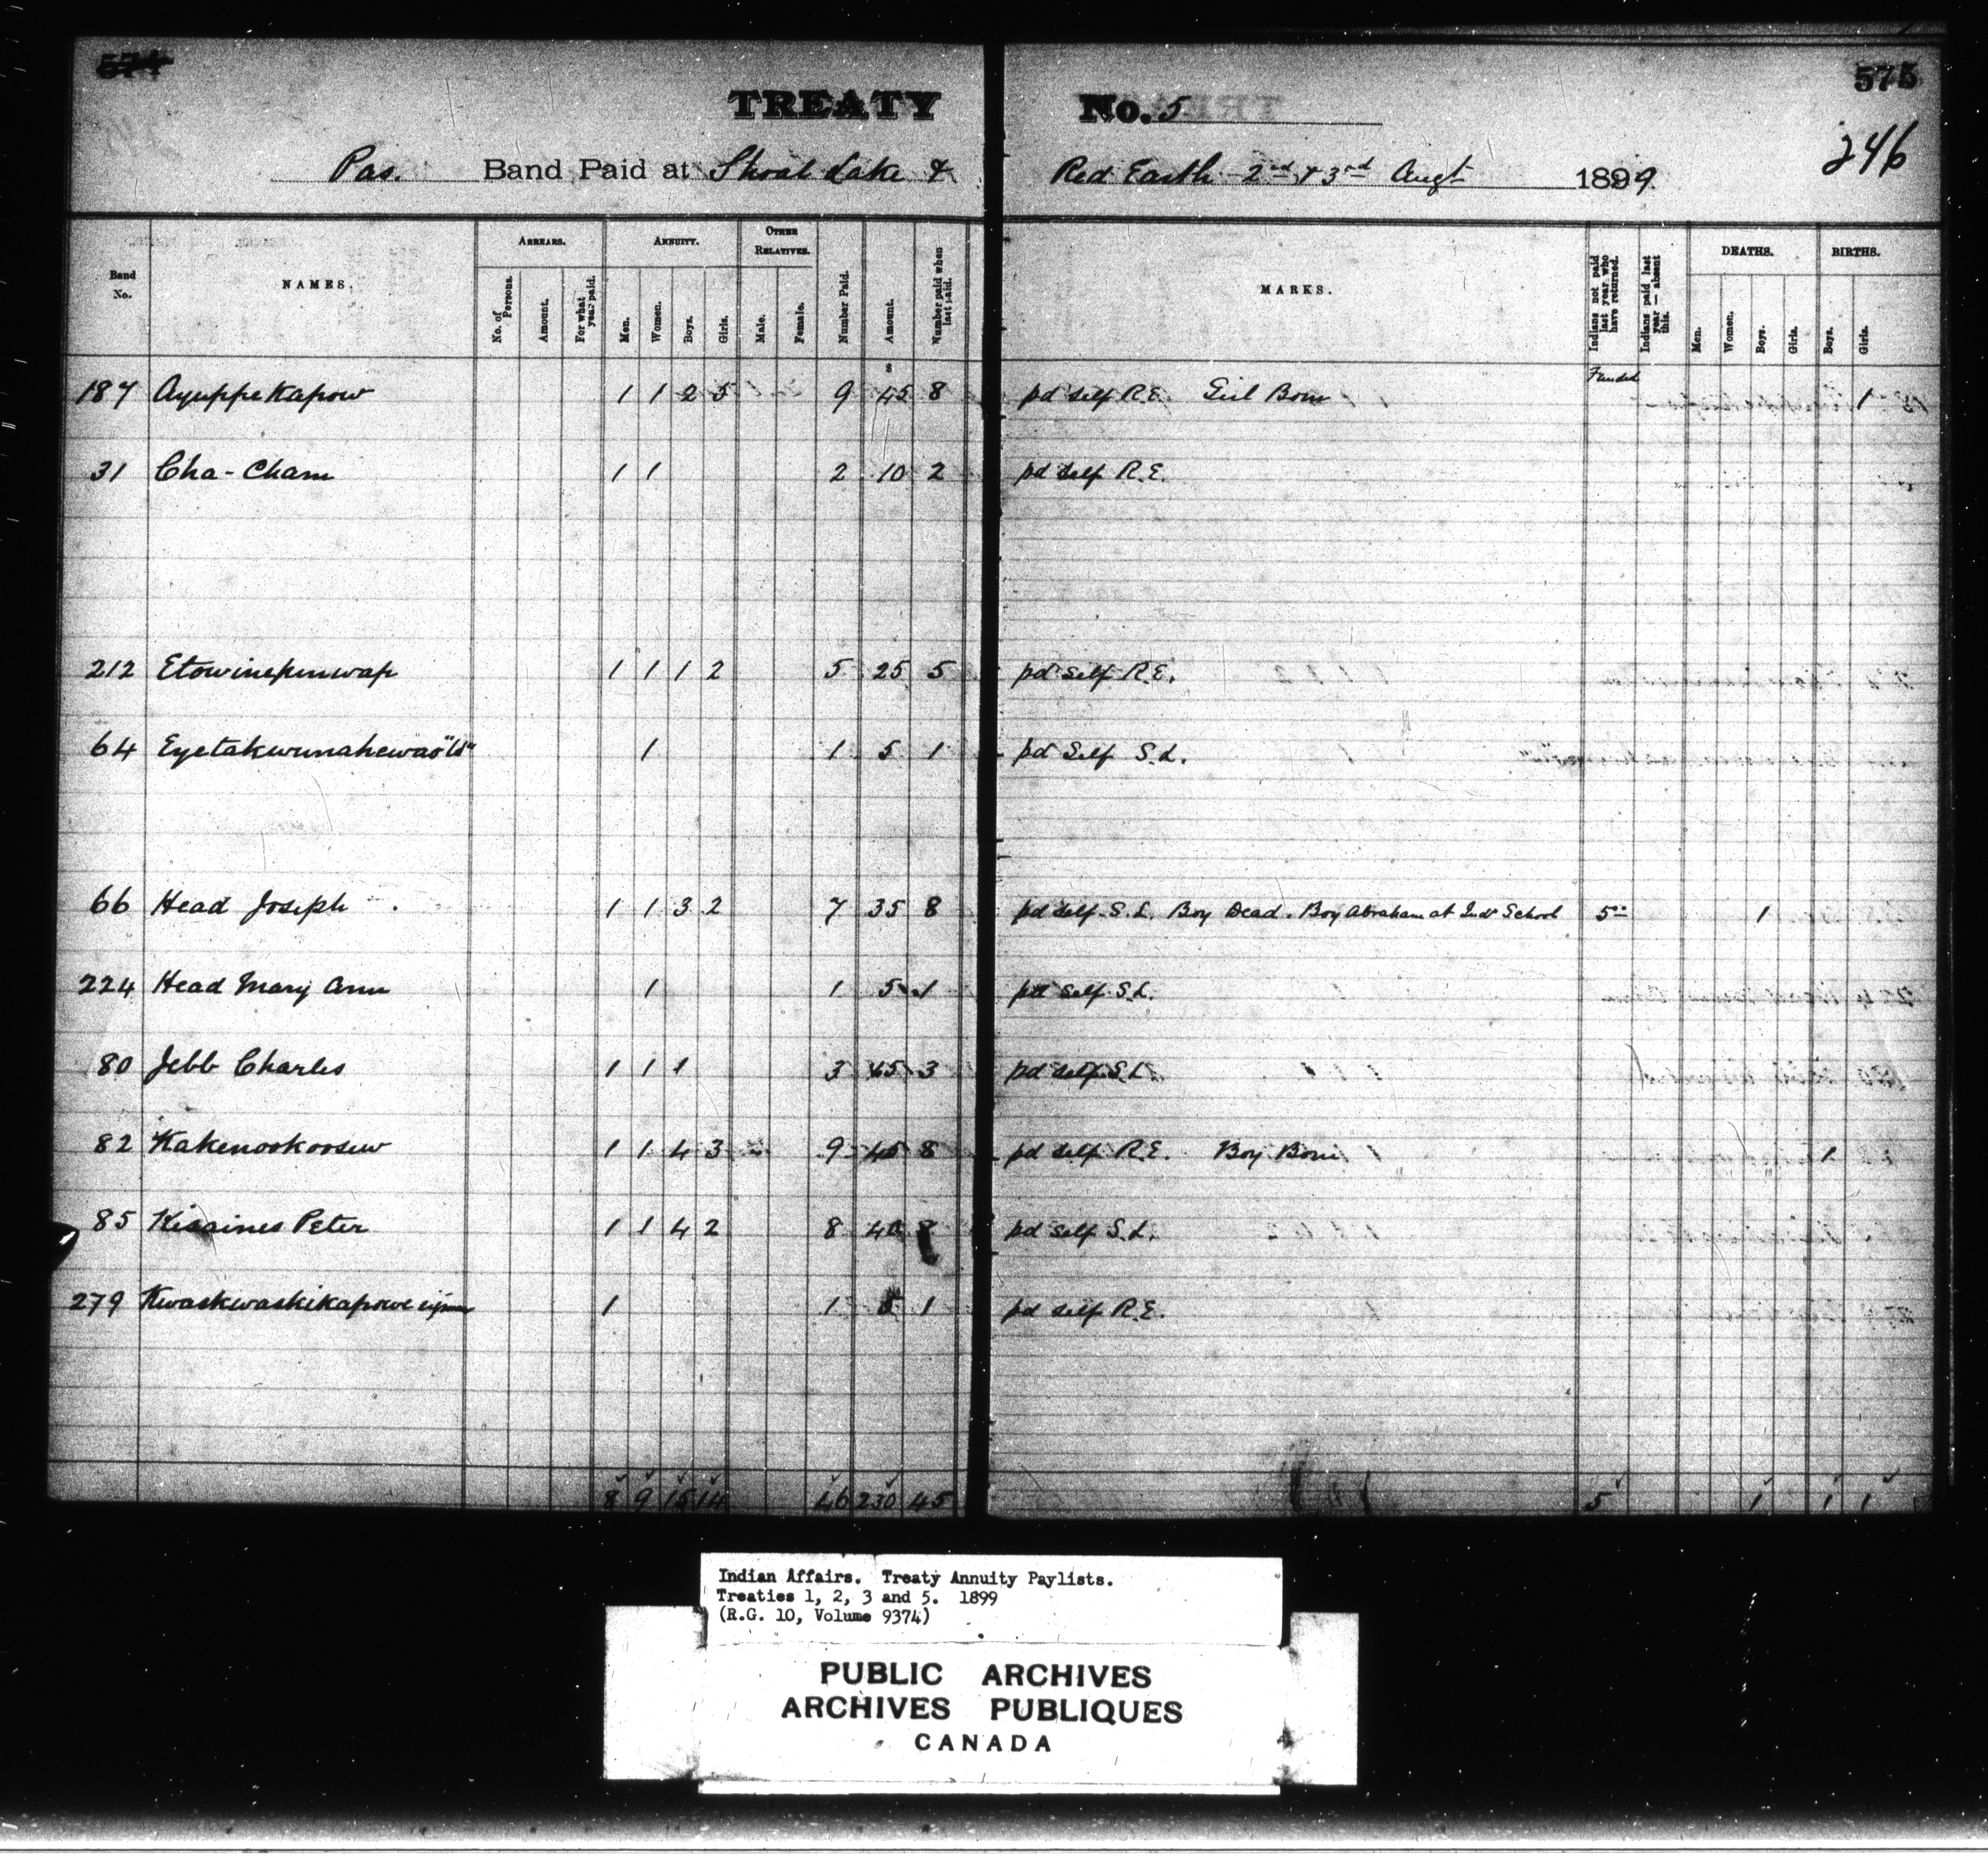 574 575
TREATY No. 5
246
Pas. Band Paid at Shoal Lake & Red Earth 2nd & 3rd Augt 1899
Band No. NAMES. ARREARS. No. of Persons. Amount. For what year paid. ANNUITY. Men. Women. Boys. Girls. OTHER RELATIVES. Male. Female. Number Paid. Amount. Number paid when last paid. MARKS. Indians not paid last year who have returned. Indians paid last year — absent this. DEATHS. Men. Women. Boys. Girls. BIRTHS. Boys. Girls.
$ Funded
187 Ayuppekapow 1 1 2 5 9 45 8 pd self R.E. Girl Born 1
31 Cha-Cham 1 1 2 10 2 pd self R.E.
212 Etowinepinwap 1 1 1 2 5 25 5 pd self R.E.
64 1 1 5 1 pd Self S.L.
66 Head Joseph 1 1 3 2 7 35 8 pd self S.L. Boy Dead. Boy Abraham at Indl School 5 00 1
224 Head Mary Ann 1 1 5 1 pd self S.L.
80 Jebb Charles 1 1 1 3 15 3 pd self S.L.
82 Kakenookoosew 1 1 4 3 9 45 8 pd self R.E. Boy Born 1
85 Kiaaines Peter 1 1 4 2 8 40 8 pd self S.L.
279 1 1 5 1 pd self R.E.
8 9 15 14 46 230 45 5 1 1 1
Indian Affairs. Treaty Annuity Paylists.
Treaties 1, 2, 3 and 5. 1899
(R.G. 10, Volume 9374)
PUBLIC ARCHIVES
ARCHIVES PUBLIQUES
CANADA